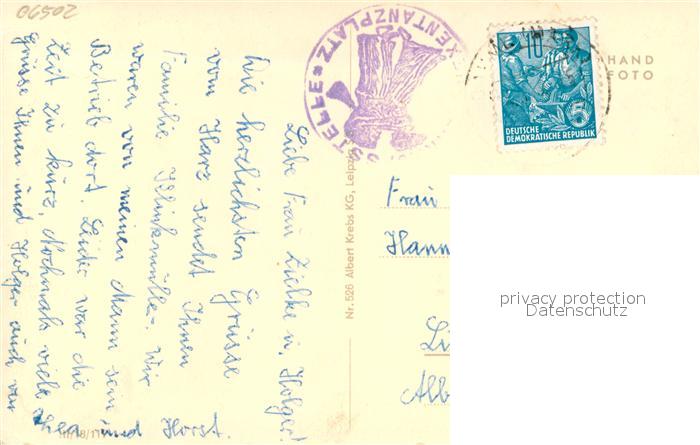 20590
Liebe Frau Zielke u. Holger!
Die herzlichsten Grüsse
vom Harz sendet Ihnen
Familie Klinkmüller. Wir
waren von meinen Mann sein
Betrieb dort. Leider war die
Zeit zu kurz, Nochmals viele
Grüsse Ihnen und Holger auch von
Thea und Horst.
III/18/1
Nr. 526 Albert Krebs KG, Leipzig
STELLE
HEXENTANZPLATZ
10
5
DEUTSCHE
DEMOKRATISCHE REPUBLIK
HAND
FOTO
Frau
Hann
Alb
privacy protection
Datenschutz